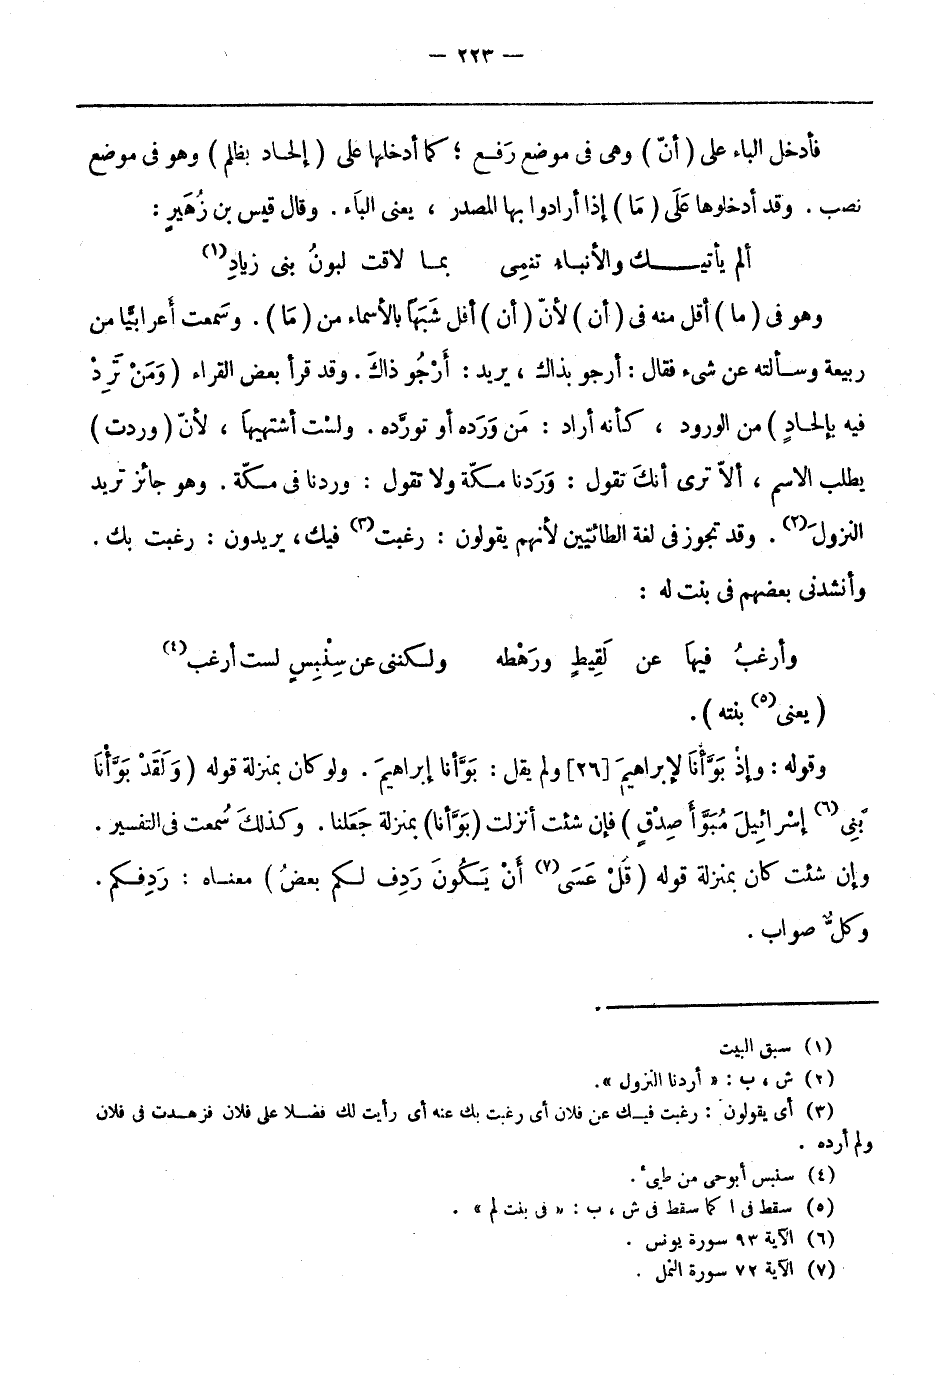 — ٢٢٣ —
فأدخل الباء على ( أنّ ) وهى فى موضع رَفـع ؛ كما أدخلها على ( إلحـاد بظلم ) وهو فى موضع
نصب . وقد أدخلوها عَلَى ( مَا ) إذا أرادوا بها المصدر ، يعنى البَاء . وقال قيس بن زُهَيرٍ :
ألم يأتيـــك والأنبـاء تنمِى بمـا لاقت لبونُ بنى زيادِ(١)
وهو فى ( ما ) أقل منه فى ( أن ) لأنّ ( أن ) أقل شَبَهًا بالأسماء من ( مَا ) . وسَمعت أعرابيًّا من
ربيعة وسـألته عن شىء فقال : أرجو بذاك ، يريد : أَرْجُو ذاكَ . وقد قرأ بعض القراء ( وَمَنْ تَرِدْ
فيه بإلحـادٍ ) من الورود ، كـأنه أراد : مَن وَرَده أو تورَّده . ولسْت أشتهيهَا ، لأنّ ( وردت )
يطلب الاسم ، ألاَ ترى أنكَ تقول : وَرَدنا مكّة ولا تقول : وردنا فى مكّة . وهو جائز تريد
النزولَ(٢) . وقد تجوز فى لغة الطائيّين لأنهم يقولون : رغبت(٣) فيك، يريدون : رغبت بك .
وأنشدنى بعضهم فى بنت له :
وأرغبُ فيهَا عن لَقِيطٍ ورَهْطه ولكننى عن سِنْبِسٍ لست أرغب(٤)
( يعنى(٥) بنته ) .
وقوله : وإذْ بَوَّأْنَا لإبراهيمَ [٢٦] ولم يقل : بَوَّأنا إبراهيمَ . ولو كان بمنزلة قوله ( وَلَقَدْ بَوَّأْنَا
بَنِى(٦) إسْرائِيلَ مُبَوَّأَ صِدْقٍ ) فإن شئت أنزلت (بَوَّأنا) بمنزلة جَعَلنا . وكذلكَ سُمعت فى التفسير .
وإن شئت كان بمنزلة قوله ( قُلْ عَسَى(٧) أَنْ يَكُونَ رَدِف لكم بعضُ ) معنـاه : رَدِفكم .
وكلٌّ صواب .
(١) سبق البيت
(٢) ش ، ب : « أردنا النزول ».
(٣) أى يقولون : رغبت فيـك عن فلان أى رغبت بك عنه أى رأيت لك فضـلا على فلان فزهـدت فى فلان
ولم أرده .
(٤) سنبس أبوحى من طيىء .
(٥) سقط فى ا كما سقط فى ش ، ب : « فى بنت لم » .
(٦) الآية ٩٣ سورة يونس .
(٧) الآية ٧٢ سورة النمل .